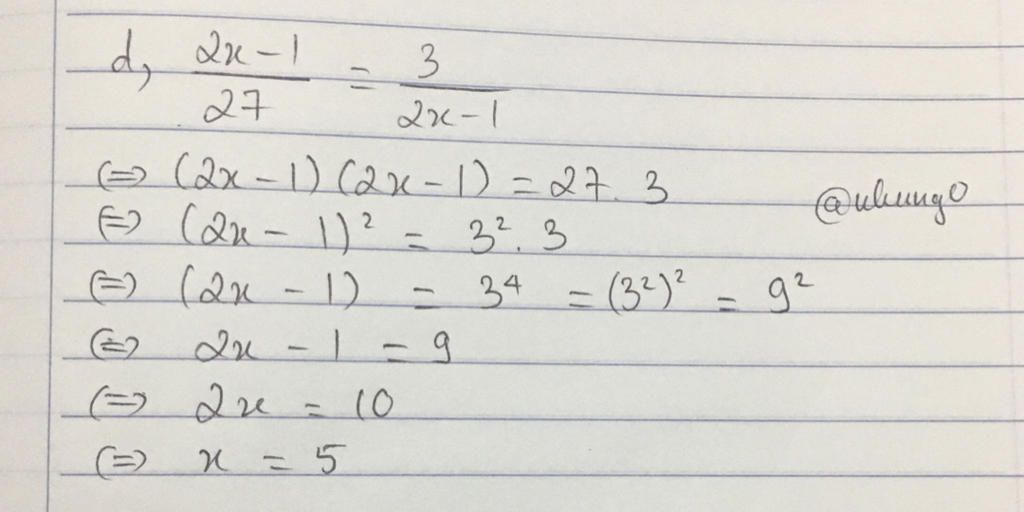 d, (2x - 1)/27 = 3/(2x - 1)
(=) (2x - 1)(2x - 1) = 27 . 3
(=) (2x - 1)² = 3² . 3
(=) (2x - 1) = 3⁴ = (3²)² = 9²
(=) 2x - 1 = 9
(=) 2x = 10
(=) x = 5